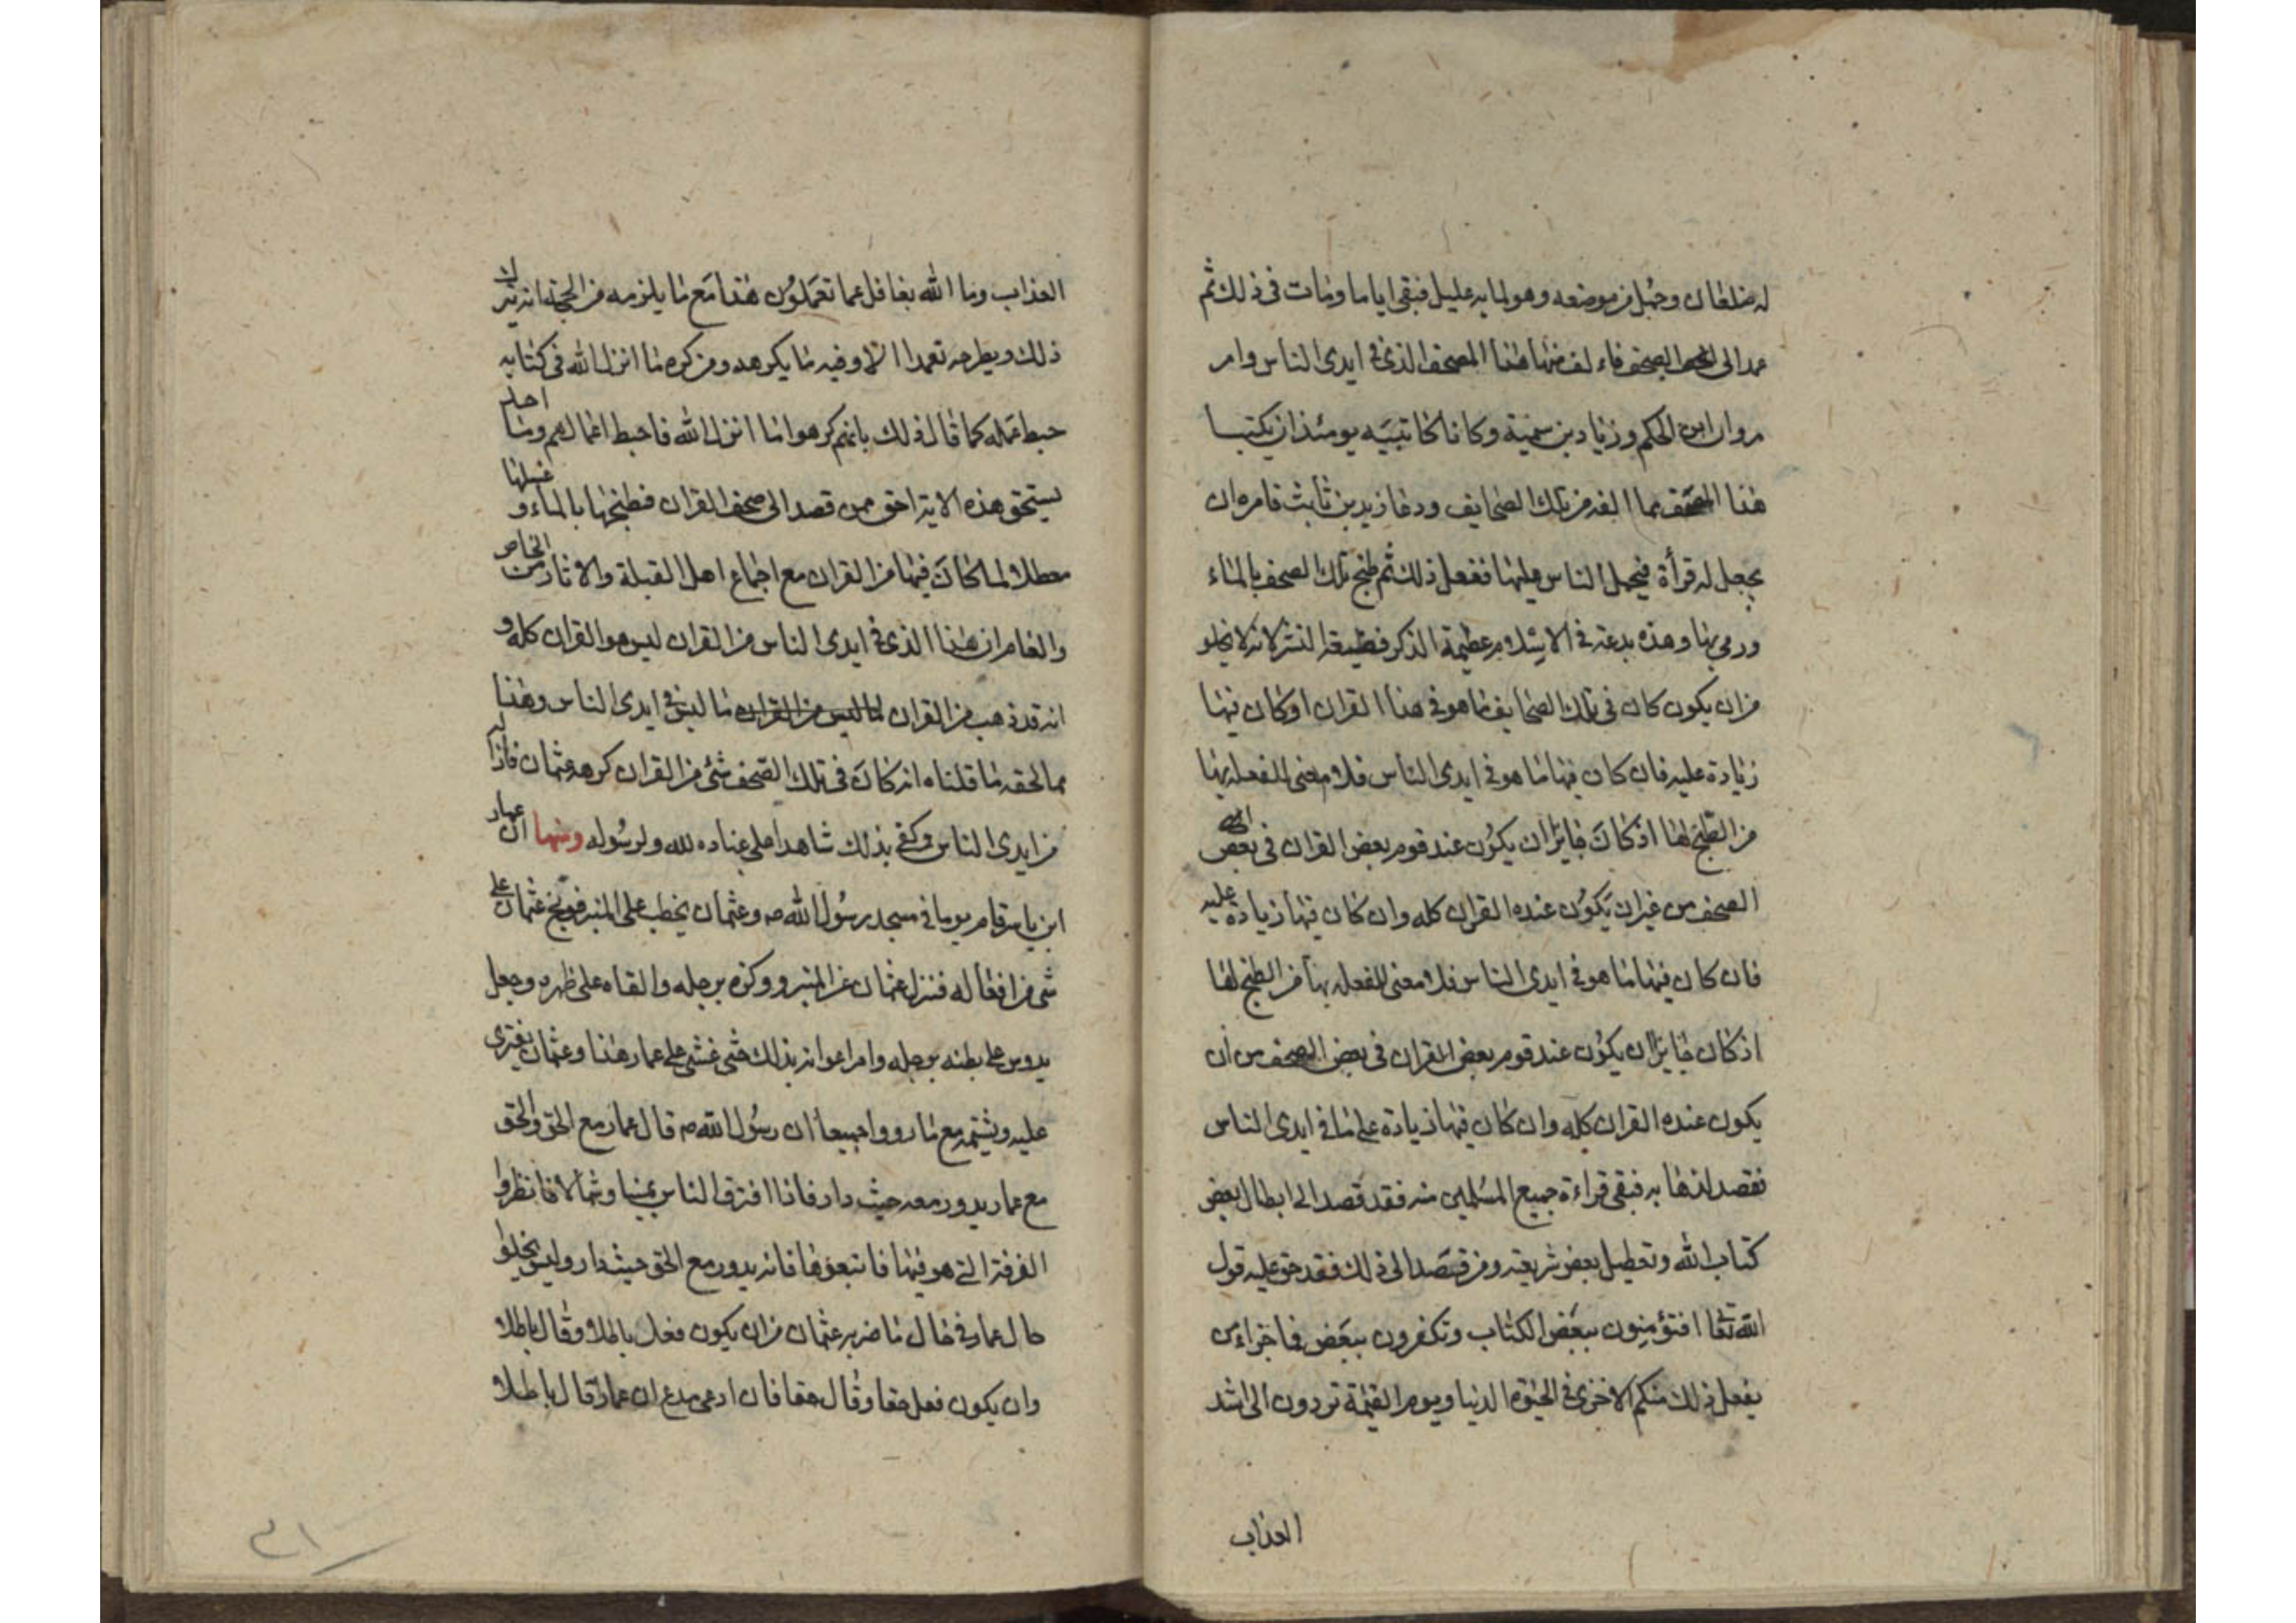 له ضلعان وحمل من موضعه وهو لما به عليل فبقى اياما ومات فى ذلك ثم
عمد الى الصحف فاء لف منها هذا المصحف الذى فى ايدى الناس وامر
مروان ابن الحكم وزياد بن سمية وكانا كاتبيه يومئذ ان يكتبا
هذا المصحف مما الفه من تلك الصحايف ودعا زيد بن ثابت فامره ان
يجعل له قرأة فيحمل الناس عليها ففعل ذلك ثم طبخ تلك الصحف بالماء
ورمى بها وهذه بدعة فى الاسلام عظيمة الذكر فظيعة النشر لانه لا يخلو
من ان يكون كان فى تلك الصحايف ما هو فى هذا القران او كان فيها
زيادة عليه فان كان فيها ما هو فى ايدى الناس فلا معنى لفعله بها
من الطبخ لها اذ كان جايزا ان يكون عند قوم بعض القران فى بعض
الصحف من غير ان يكون عنده القران كله وان كان فيها زيادة عليه
فان كان فيها ما هو فى ايدى الناس فلا معنى لفعله بها من الطبخ لها
اذ كان جايزا ان يكون عند قوم بعض القران فى بعض الصحف من ان
يكون عنده القران كله وان كان فيها زيادة على ما فى ايدى الناس
فقصد لذهابه فبقى قراءة جميع المسلمين منه فقد قصد الى ابطال بعض
كتاب الله وتعطيل بعض شريعته ومن قصد الى ذلك فقد حق عليه قول
الله تعالى افتؤمنون ببعض الكتاب وتكفرون ببعض فما جزاء من
يفعل ذلك منكم الا خزى فى الحيوة الدنيا ويوم القيمة تردون الى اشد
العذاب
العذاب وما الله بغافل عما تعملون هذا مع ما يلزمه من الحجة انه لم يترك
ذلك ويطرحه تعمدا الا وفيه ما يكرهه ومن كره ما انزل الله فى كتابه
حبط عمله كما قال ذلك بانهم كرهوا ما انزل الله فاحبط اعمالهم وما احد
يستحق هذه الاية احق ممن قصد الى صحف القران فطبخها بالماء و غسلها
معطلا لما كان فيها من القران مع اجماع اهل القبلة والاثار من الخاص
والعام ان هذا الذى فى ايدى الناس من القران ليس هو القران كله و
انه قد ذهب من القران ما ليس فى ايدى الناس وهذا
مما لحقه ما قلناه انه كان فى تلك الصحف شئ من القران كرهه عثمان فازاله
من ايدى الناس وكفى بذلك شاهدا على عناده لله ولرسوله ومنها ان عمار
ابن ياسر قام يوما فى مسجد رسول الله ص وعثمان يخطب على المنبر فوبخ عثمان على
شئ من افعاله فنزل عثمان عن المنبر ووكزه برجله والقاه على ظهره وجعل
يدوس على بطنه برجله وامر اعوانه بذلك حتى غشى على عمار هذا وعثمان يفترى
عليه ويشتمه مع ما رووا جميعا ان رسول الله ص قال عمار مع الحق والحق
مع عمار يدور معه حيث دار فاذا افترق الناس يمينا وشمالا فانظروا
الفرقة التى هو فيها فاتبعوها فانه يدور مع الحق حيث دار وليس يخلوا
حال عمار فى حال ما ضربه عثمان من ان يكون فعل باطلا وقال باطلا
وان يكون فعل حقا وقال حقا فان ادعى مدع ان عمارا قال باطلا